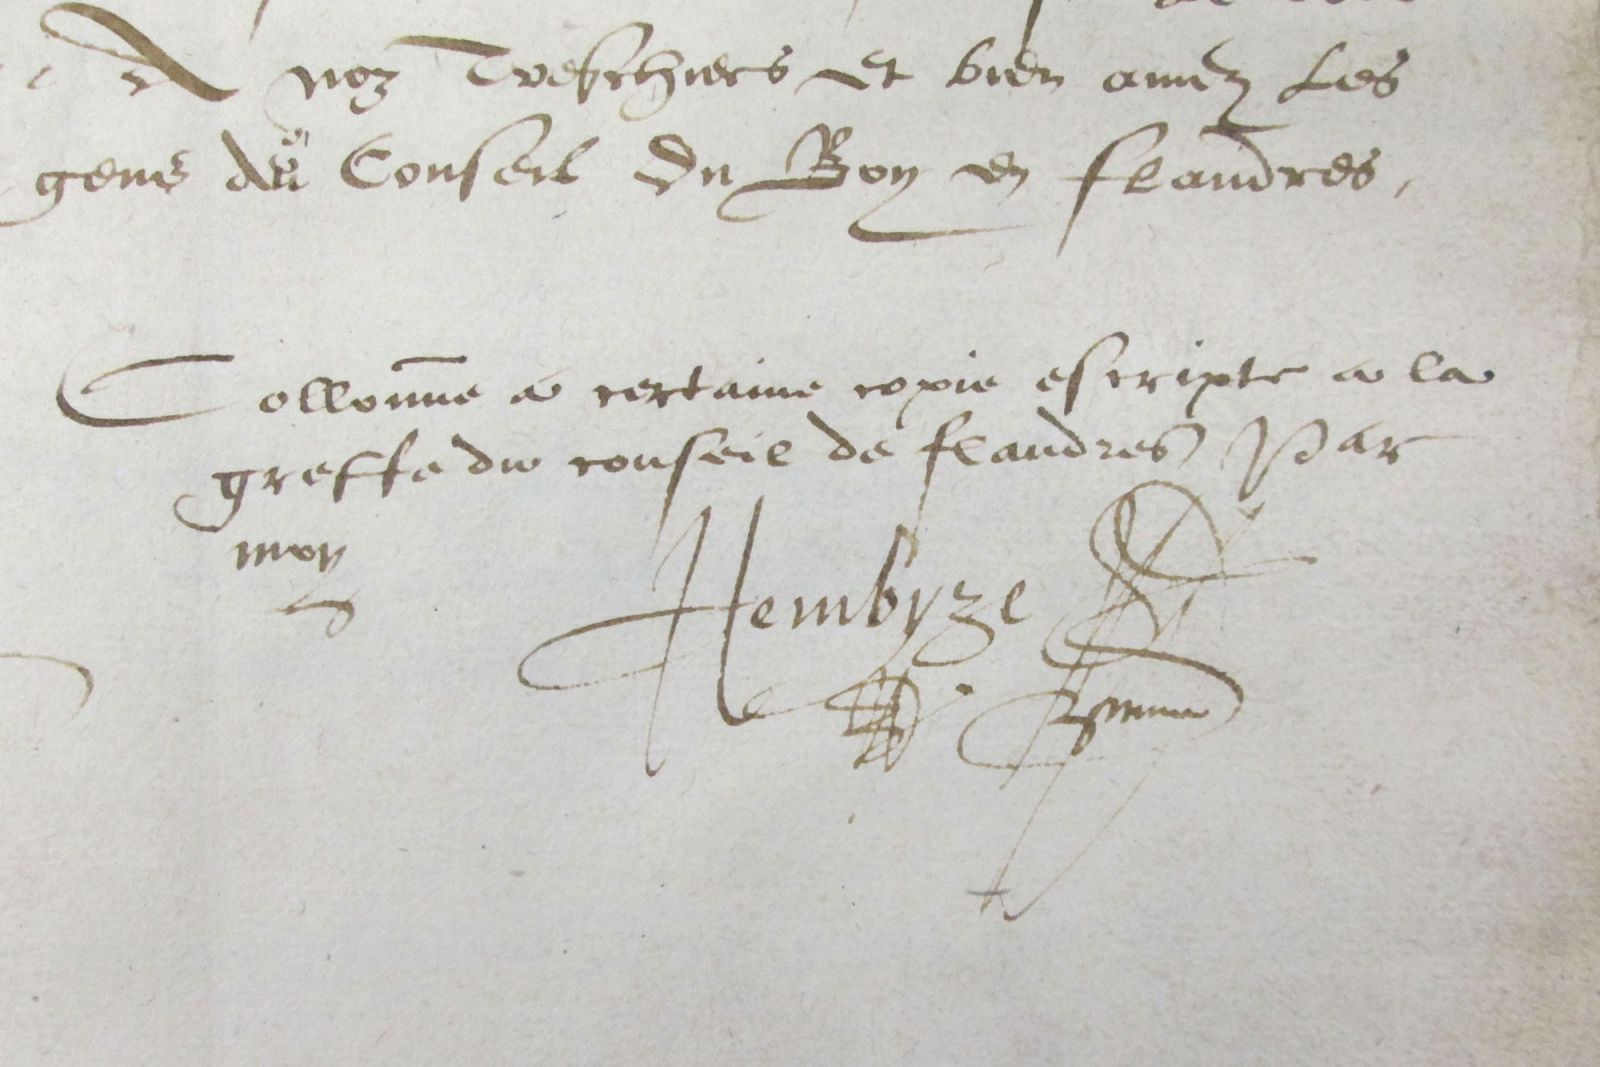 A noz Treschiers et bien amez Les
gens du Conseil du Roy en flandres,
Collonne a certaine copie escripte a la
greffe du conseil de flandres Par
moy
Hembyze